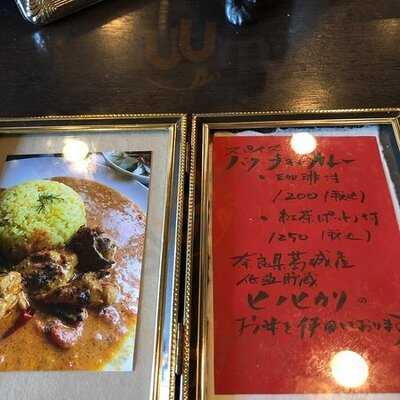 スパイス
バターチキンカレー
・珈琲付
1200(税込)
・紅茶ポット付
1250(税込)
奈良県葛城産
低温貯蔵
ヒノヒカリの
お米を使用しております